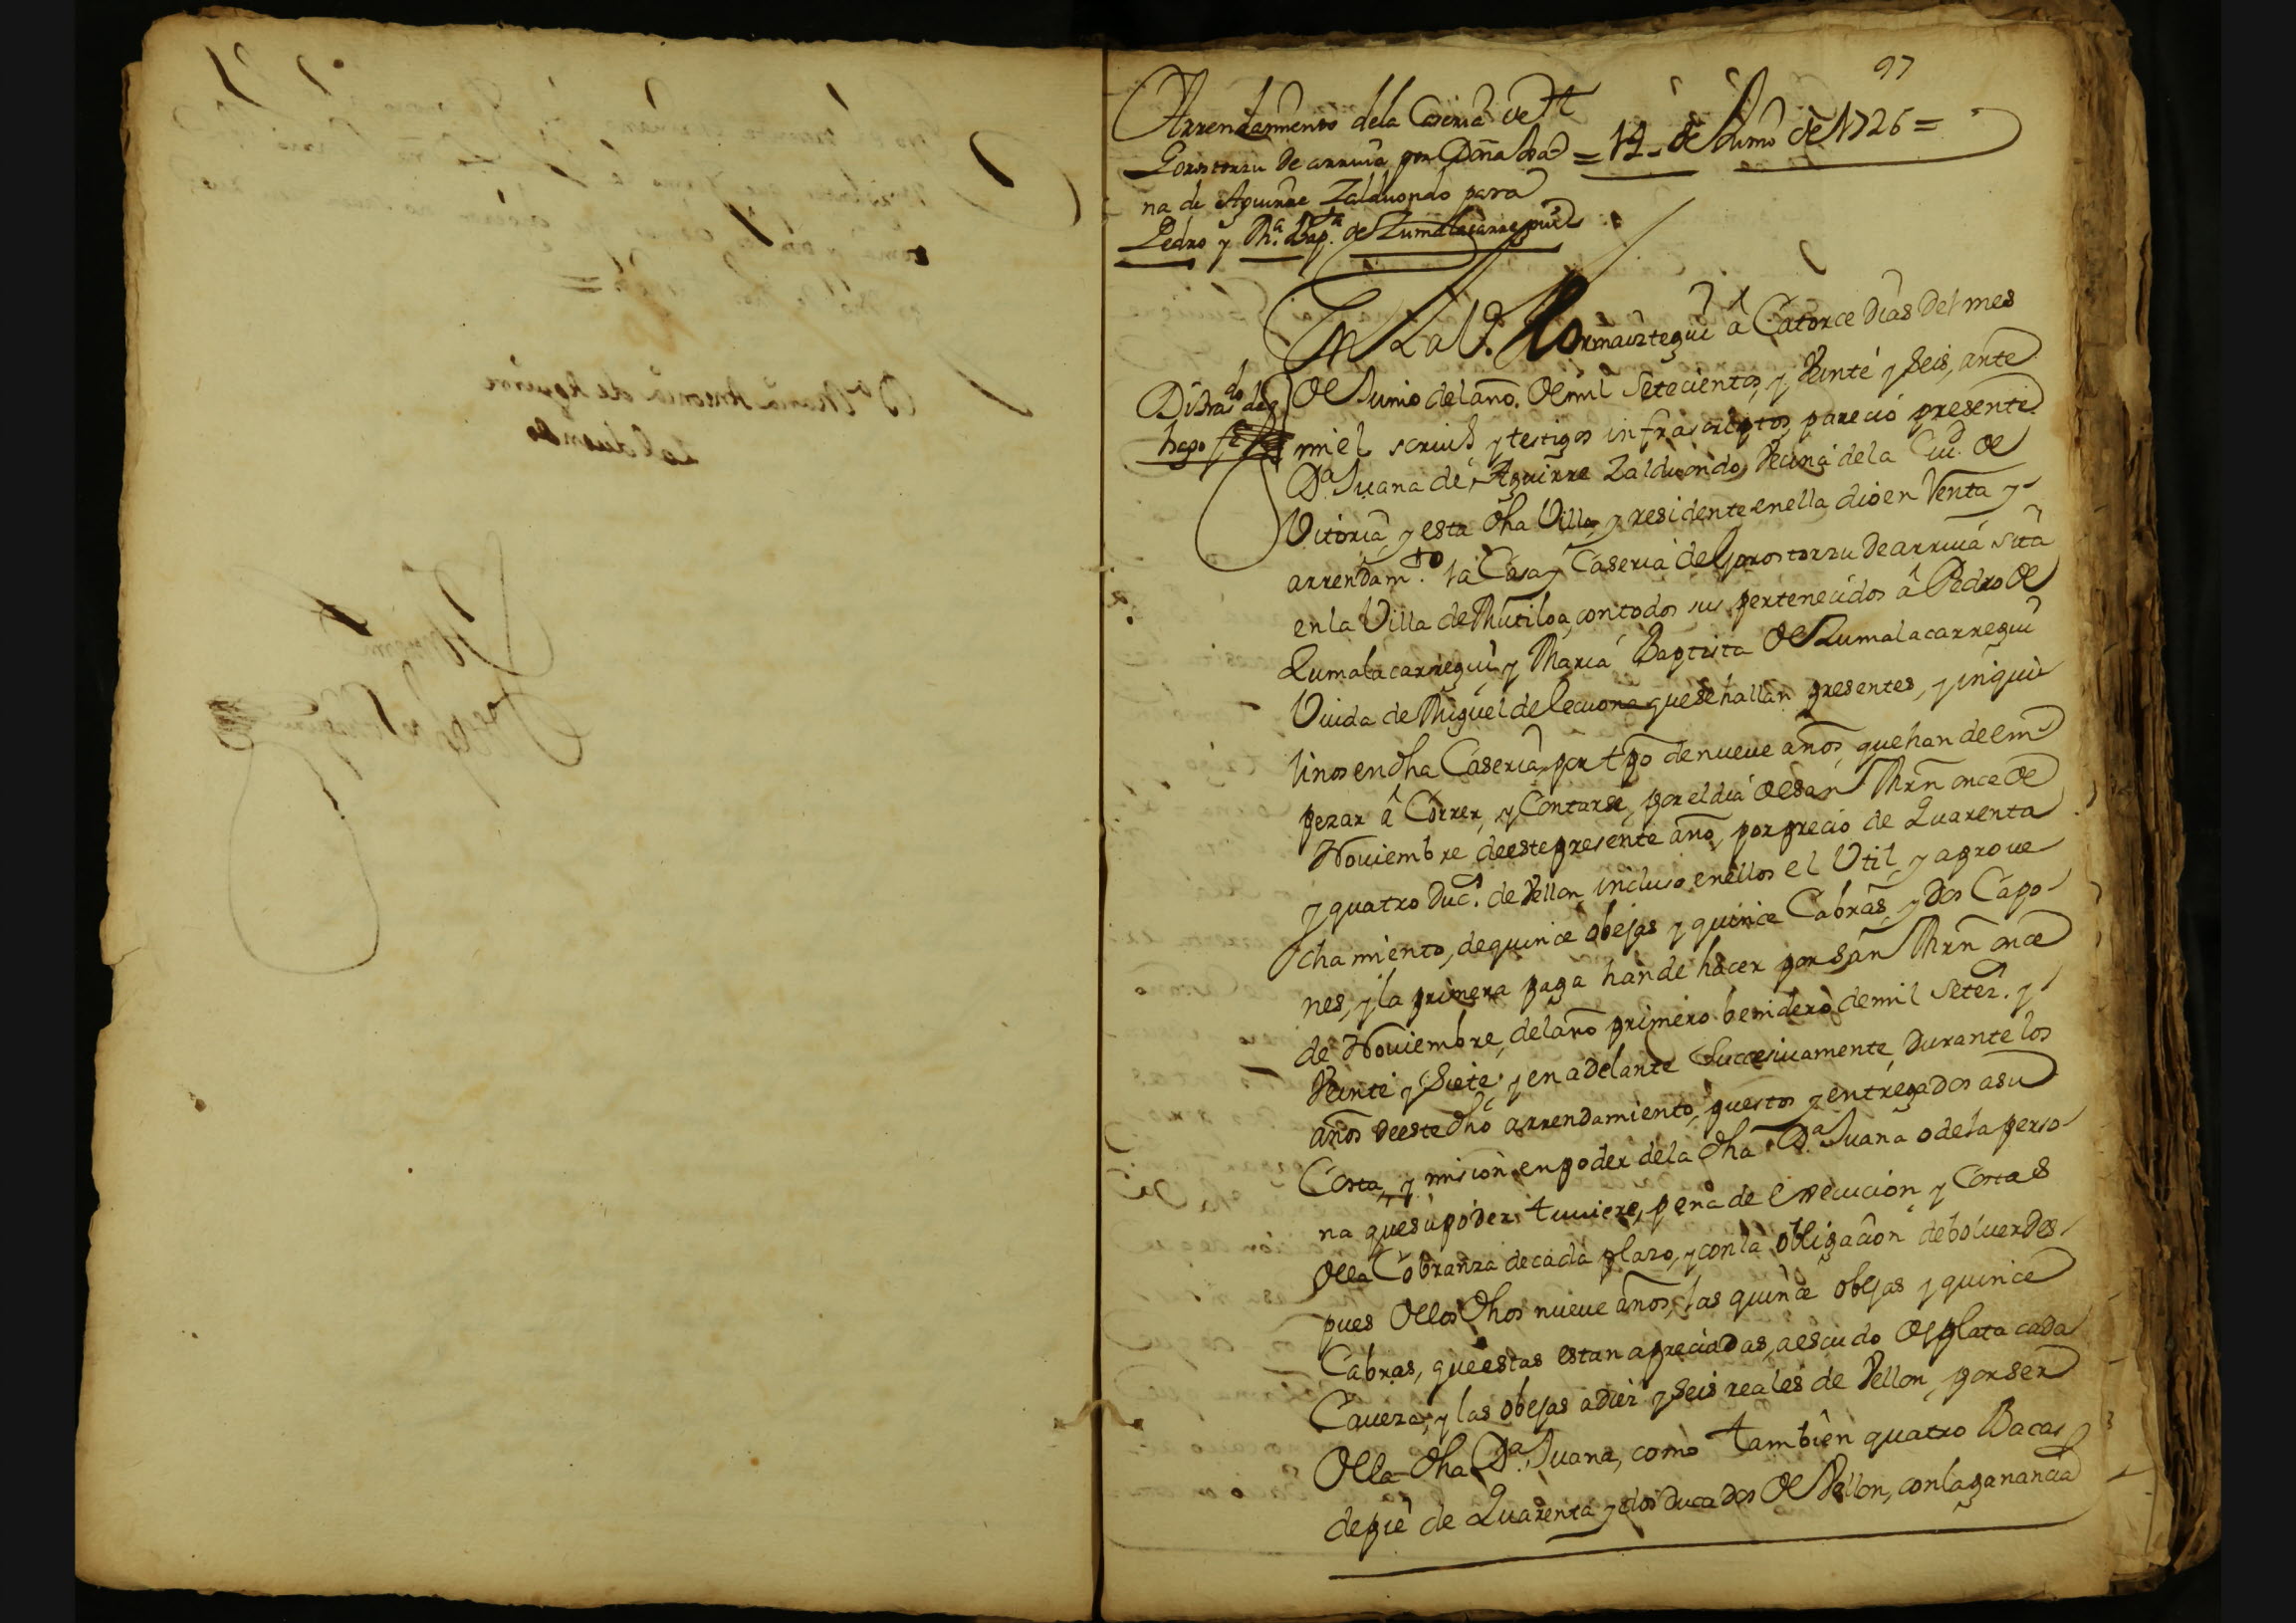 97
Arrendamiento dela Caseria de
Gorostorzu de arriua por Doña Jua
= 14 - de Junio de 1726 =
na de Aguirre Zalduondo para
Pedro y Mª. Bapᵗᵃ. de Zumalacarregui
En La Vᵃ. de Ormaiztegui â Catorce dias del mes
de Junio del año. de mil Setecientos, y Veinte y Seis, ante
mi el scriuº. y testigos infrascriptos, parecio presente
Dᵃ. Juana de Aguirre Zalduondo, Vecina de la Ciuᵈ. de
Vitoria, y esta dha Villa, y residente en ella dio en Venta y
arrendamᵗᵒ. la Casa y Caseria de Gorostorzu de arriua sita
en la Villa de Mutiloa, con todos sus pertenecidos â Pedro de
Zumalacarregui, y Maria Baptista de Zumalacarregui
Viuda de Miguel de Lecuona que se hallan presentes, y inqui
linos en dha Caseria, por tpo de nueue años, que han de em
pezar â Correr, y Contarse, por el dia de san Mrn once de
Nouiembre de este presente año, por precio de Quarenta
y quatro Ducˢ. de Vellon, incluso en ellos el Util, y aproue
chamiento, de quince obejas y quince Cabras, y dos Capo
nes, y la primera paga han de hacer por san Mrn once
de Nouiembre, del año primero benidero de mil Seteˢ. y
Veinte y Siete, y en adelante Succesiuamente, Durante los
años de este dho arrendamiento, puestos y entregados a su
Costa, y mision en poder de la dha Dᵃ. Juana o de la perso
na que su poder tuuiere, pena de execucion y Costas
de la Cobranza de cada plazo, y con la obligacion de boluer des
pues de los dhos nueue años, las quince obejas y quince
Cabras, que estas estan apreciadas, a escudo de plata cada
Caueza, y las obejas a diez y seis reales de Vellon, por ser
de la dha Dᵃ. Juana, como tambien quatro Bacas
de pie de Quarenta y dos ducados de Vellon, con la ganancia
Dᵃ Maria Antonia de Aguirre
Zalduondo